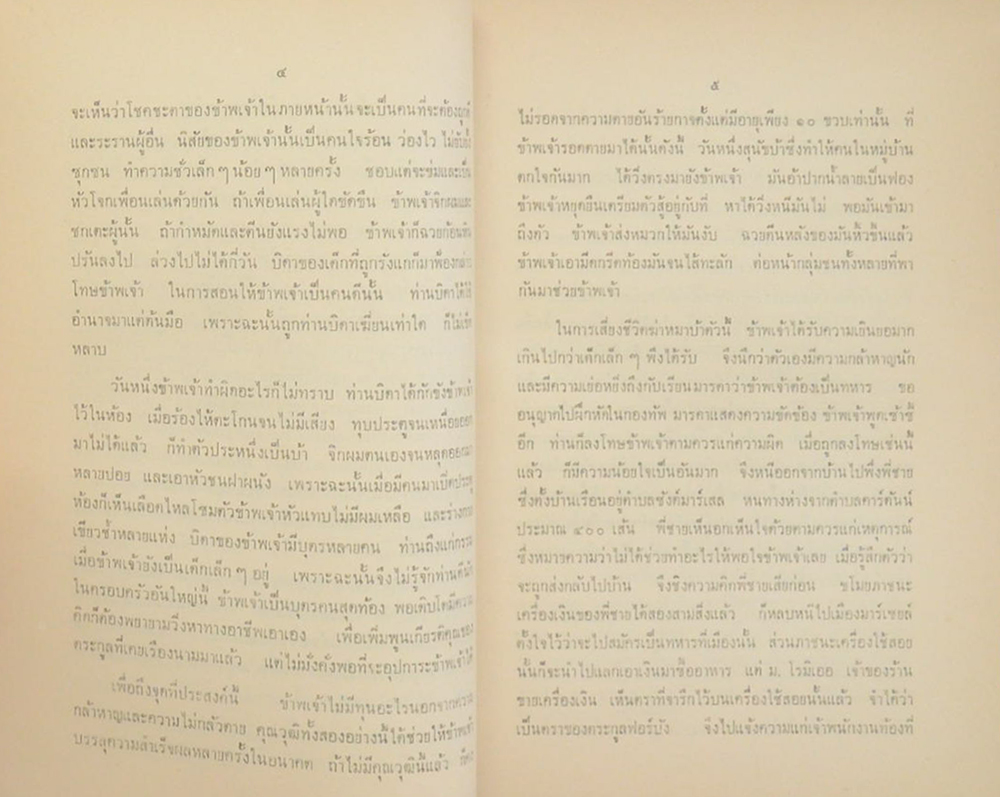 ๔
จะเห็นว่าโชคชะตาของข้าพเจ้าในภายหน้านั้นจะเป็นคนที่จะต้อง
และระรานผู้อื่น นิสัยของข้าพเจ้านั้นเป็นคนใจร้อน ว่องไว
ซุกซน ทำความชั่วเล็ก ๆ น้อย ๆ หลายครั้ง ชอบแต่จะข่มและเป็น
หัวโจกเพื่อนเล่นด้วยกัน ถ้าเพื่อนเล่นผู้ใดขัดขืน ข้าพเจ้าจิกผมและ
ชกเตะผู้นั้น ถ้ากำหมัดและตีนยังแรงไม่พอ ข้าพเจ้าก็ฉวยก้อนหิน
ปรันลงไป ล่วงไปไม่ได้กี่วัน บิดาของเด็กที่ถูกรังแกก็มาฟ้อง
โทษข้าพเจ้า ในการสอนให้ข้าพเจ้าเป็นคนดีนั้น ท่านบิดาได้ใช้
อำนาจมาแต่ต้นมือ เพราะฉะนั้นถูกท่านบิดาเฆี่ยนเท่าใด ก็ไม่เข็ด
หลาบ
วันหนึ่งข้าพเจ้าทำผิดอะไรก็ไม่ทราบ ท่านบิดาได้กักขังข้าพเจ้า
ไว้ในห้อง เมื่อร้องไห้ตะโกนจนไม่มีเสียง ทุบประตูจนเหนื่อย
มาไม่ได้แล้ว ก็ทำตัวประหนึ่งเป็นบ้า จิกผมตนเองจนหลุดออกมา
หลายปอย และเอาหัวชนฝาผนัง เพราะฉะนั้นเมื่อมีคนมาเปิดประตู
ห้องก็เห็นเลือดไหลโซมตัวข้าพเจ้าหัวแทบไม่มีผมเหลือ และร่างกาย
เขียวช้ำหลายแห่ง บิดาของข้าพเจ้ามีบุตรหลายคน ท่านถึงแก่กรรม
เมื่อข้าพเจ้ายังเป็นเด็กเล็ก ๆ อยู่ เพราะฉะนั้นจึงไม่รู้จักท่านดีนัก
ในครอบครัวอันใหญ่นี้ ข้าพเจ้าเป็นบุตรคนสุดท้อง พอเติบโตมีความ
คิดก็ต้องพยายามวิ่งหาทางอาชีพเอาเอง เพื่อเพิ่มพูนเกียรติคุณของ
ตระกูลที่เคยเรืองนามมาแล้ว แต่ไม่มั่งคั่งพอที่จะอุปการะข้าพเจ้าได้
เพื่อถึงจุดที่ประสงค์นี้ ข้าพเจ้าไม่มีทุนอะไรนอกจากความ
กล้าหาญและความไม่กลัวตาย คุณวุฒิทั้งสองอย่างนี้ได้ช่วยให้ข้าพเจ้า
บรรลุความสำเร็จผลหลายครั้งในอนาคต ถ้าไม่มีคุณวุฒินี้แล้ว
๕
ไม่รอดจากความตายอันร้ายกาจตั้งแต่มีอายุเพียง ๑๐ ขวบเท่านั้น ที่
ข้าพเจ้ารอดตายมาได้นั้นดังนี้ วันหนึ่งสุนัขบ้าซึ่งทำให้คนในหมู่บ้าน
ตกใจกันมาก ได้วิ่งตรงมายังข้าพเจ้า มันอ้าปากน้ำลายเป็นฟอง
ข้าพเจ้าหยุดยืนเตรียมตัวสู้อยู่กับที่ หาได้วิ่งหนีมันไม่ พอมันเข้ามา
ถึงตัว ข้าพเจ้าส่งหมวกให้มันงับ ฉวยตีนหลังของมันหิ้วขึ้นแล้ว
ข้าพเจ้าเอามีดกรีดท้องมันจนไส้ทะลัก ต่อหน้ากลุ่มชนทั้งหลายที่พา
กันมาช่วยข้าพเจ้า
ในการเสี่ยงชีวิตฆ่าหมาบ้าตัวนี้ ข้าพเจ้าได้รับความเยินยอมาก
เกินไปกว่าเด็กเล็ก ๆ พึงได้รับ จึงนึกว่าตัวเองมีความกล้าหาญนัก
และมีความเย่อหยิ่งถึงกับเรียนมารดาว่าข้าพเจ้าต้องเป็นทหาร ขอ
อนุญาตไปฝึกหัดในกองทัพ มารดาแสดงความขัดข้อง ข้าพเจ้าพูดเซ้าซี้
อีก ท่านก็ลงโทษข้าพเจ้าตามควรแก่ความผิด เมื่อถูกลงโทษเช่นนี้
แล้ว ก็มีความน้อยใจเป็นอันมาก จึงหนีออกจากบ้านไปพึ่งพี่ชาย
ซึ่งตั้งบ้านเรือนอยู่ตำบลซังต์มาร์เสล หนทางห่างจากตำบลการ์ดันน์
ประมาณ ๔๐๐ เส้น พี่ชายเห็นอกเห็นใจด้วยตามควรแก่เหตุการณ์
ซึ่งหมายความว่าไม่ได้ช่วยทำอะไรให้พอใจข้าพเจ้าเลย เมื่อรู้สึกตัวว่า
จะถูกส่งกลับไปบ้าน จึงชิงความคิดพี่ชายเสียก่อน ขโมยภาชนะ
เครื่องเงินของพี่ชายได้สองสามสิ่งแล้ว ก็หลบหนีไปเมืองมาร์เซยล์
ตั้งใจไว้ว่าจะไปสมัครเป็นทหารที่เมืองนั้น ส่วนภาชนะเครื่องใช้สอย
นั้นก็จะนำไปแลกเอาเงินมาซื้ออาหาร แต่ ม. โรมิเออ เจ้าของร้าน
ขายเครื่องเงิน เห็นตราที่จารึกไว้บนเครื่องใช้สอยนั้นแล้ว จำได้ว่า
เป็นตราของตระกูลฟอร์บัง จึงไปแจ้งความแก่เจ้าพนักงานท้องที่